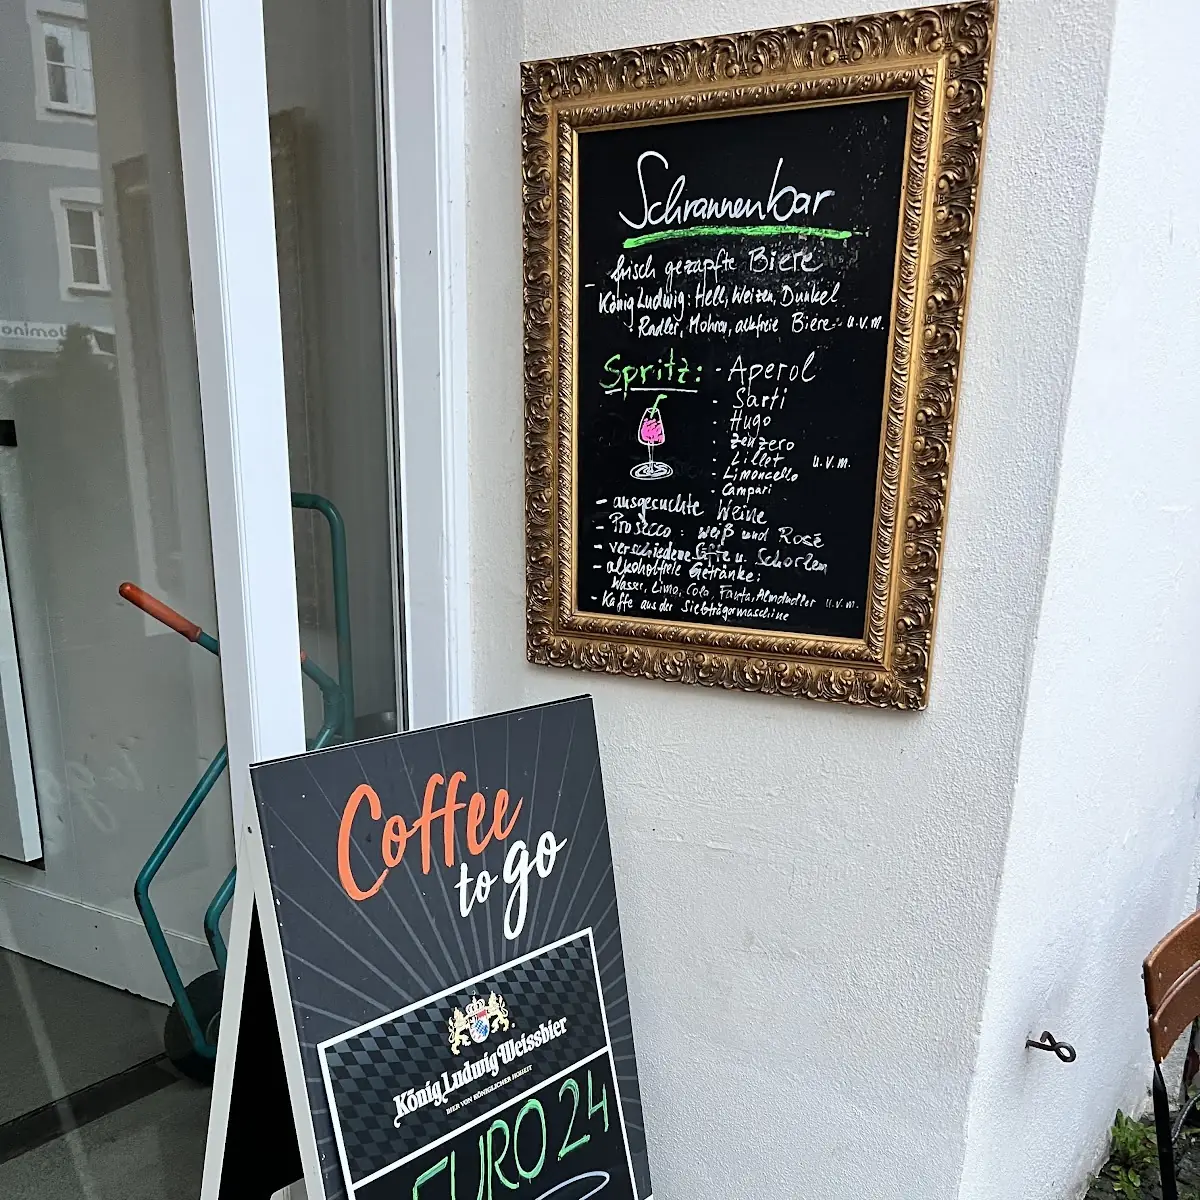 Schrannenbar
frisch gezapfte Biere
- König Ludwig: Hell, Weizen, Dunkel
Radler, Mohren, alkfreie Biere - u.v.m.
Spritz: - Aperol
- Sarti
- Hugo
- Zenzero
- Lillet u.v.m.
- Limoncello
- Campari
- ausgesuchte Weine
- Prosecco: weiß und Rosé
- verschiedene Säfte u. Schorlen
- alkoholfreie Getränke:
Wasser, Limo, Cola, Fanta, Almdudler u.v.m.
- Kaffe aus der Siebträgermaschine
Coffee
to go
König Ludwig Weissbier
BIER VON KÖNIGLICHER HOHEIT
EURO 24